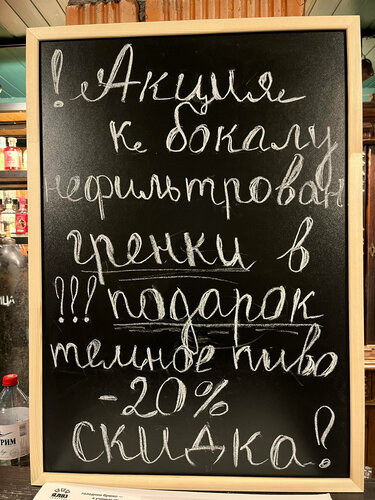 ! Акция
к бокалу
нефильтрован
гренки в
!!! подарок
темное пиво
-20%
скидка!